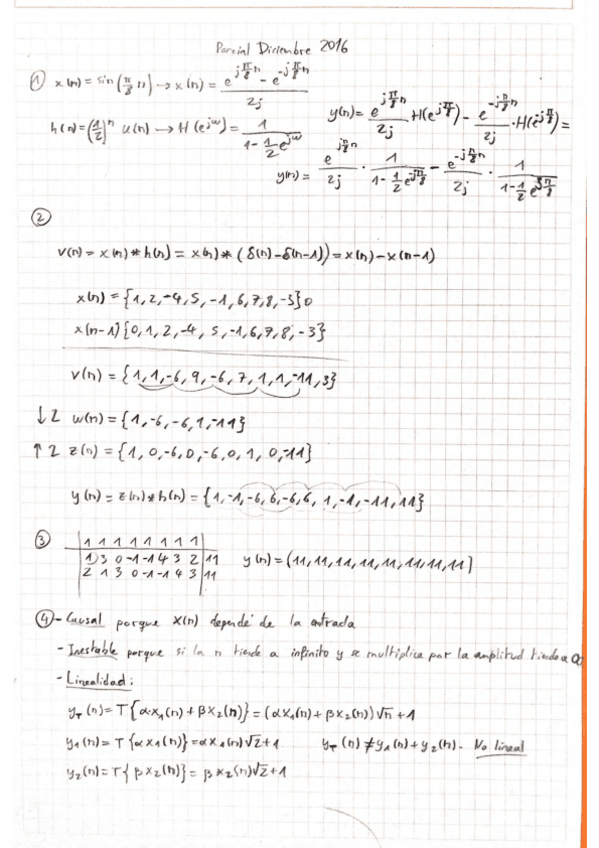 Parcial Diciembre 2016
① x(n) = sin(π/8 n) → x(n) = (e^{jπ/8 n} - e^{-jπ/8 n}) / 2j
h(n) = (1/2)^n u(n) → H(e^{jω}) = 1 / (1 - 1/2 e^{jω})
y(n) = e^{jπ/8 n} / 2j H(e^{jπ/8}) - e^{-jπ/8 n} / 2j · H(e^{-jπ/8}) =
y(n) = e^{jπ/8 n} / 2j · 1 / (1 - 1/2 e^{-jπ/8}) - e^{-jπ/8 n} / 2j · 1 / (1 - 1/2 e^{jπ/8})
②
v(n) = x(n) * h(n) = x(n) * (δ(n) - δ(n-1)) = x(n) - x(n-1)
x(n) = {1, 2, -4, 5, -1, 6, 7, 8, -3} 0
x(n-1) {0, 1, 2, -4, 5, -1, 6, 7, 8, -3}
v(n) = {1, 1, -6, 9, -6, 7, 1, 1, -11, 3}
↓2 w(n) = {1, -6, -6, 1, -11}
↑2 z(n) = {1, 0, -6, 0, -6, 0, 1, 0, -11}
y(n) = z(n) * h(n) = {1, -1, -6, 6, -6, 6, 1, -1, -11, 11}
③ 1 1 1 1 1 1 1 1
1) 3 0 -1 -1 4 3 2 | 11 y(n) = (11, 11, 11, 11, 11, 11, 11, 11]
2 1 3 0 -1 -1 4 3 | 11
④ - Causal porque x(n) depende de la entrada
- Inestable porque si la n tiende a infinito y se multiplica por la amplitud tiende a ∞
- Linealidad:
y_T(n) = T{α·x₁(n) + βx₂(n)} = (αx₁(n) + βx₂(n))√n + 1
y₁(n) = T{αx₁(n)} = αx₁(n)√2 + 1 y_T(n) ≠ y₁(n) + y₂(n). No lineal
y₂(n) = T{βx₂(n)} = βx₂(n)√2 + 1